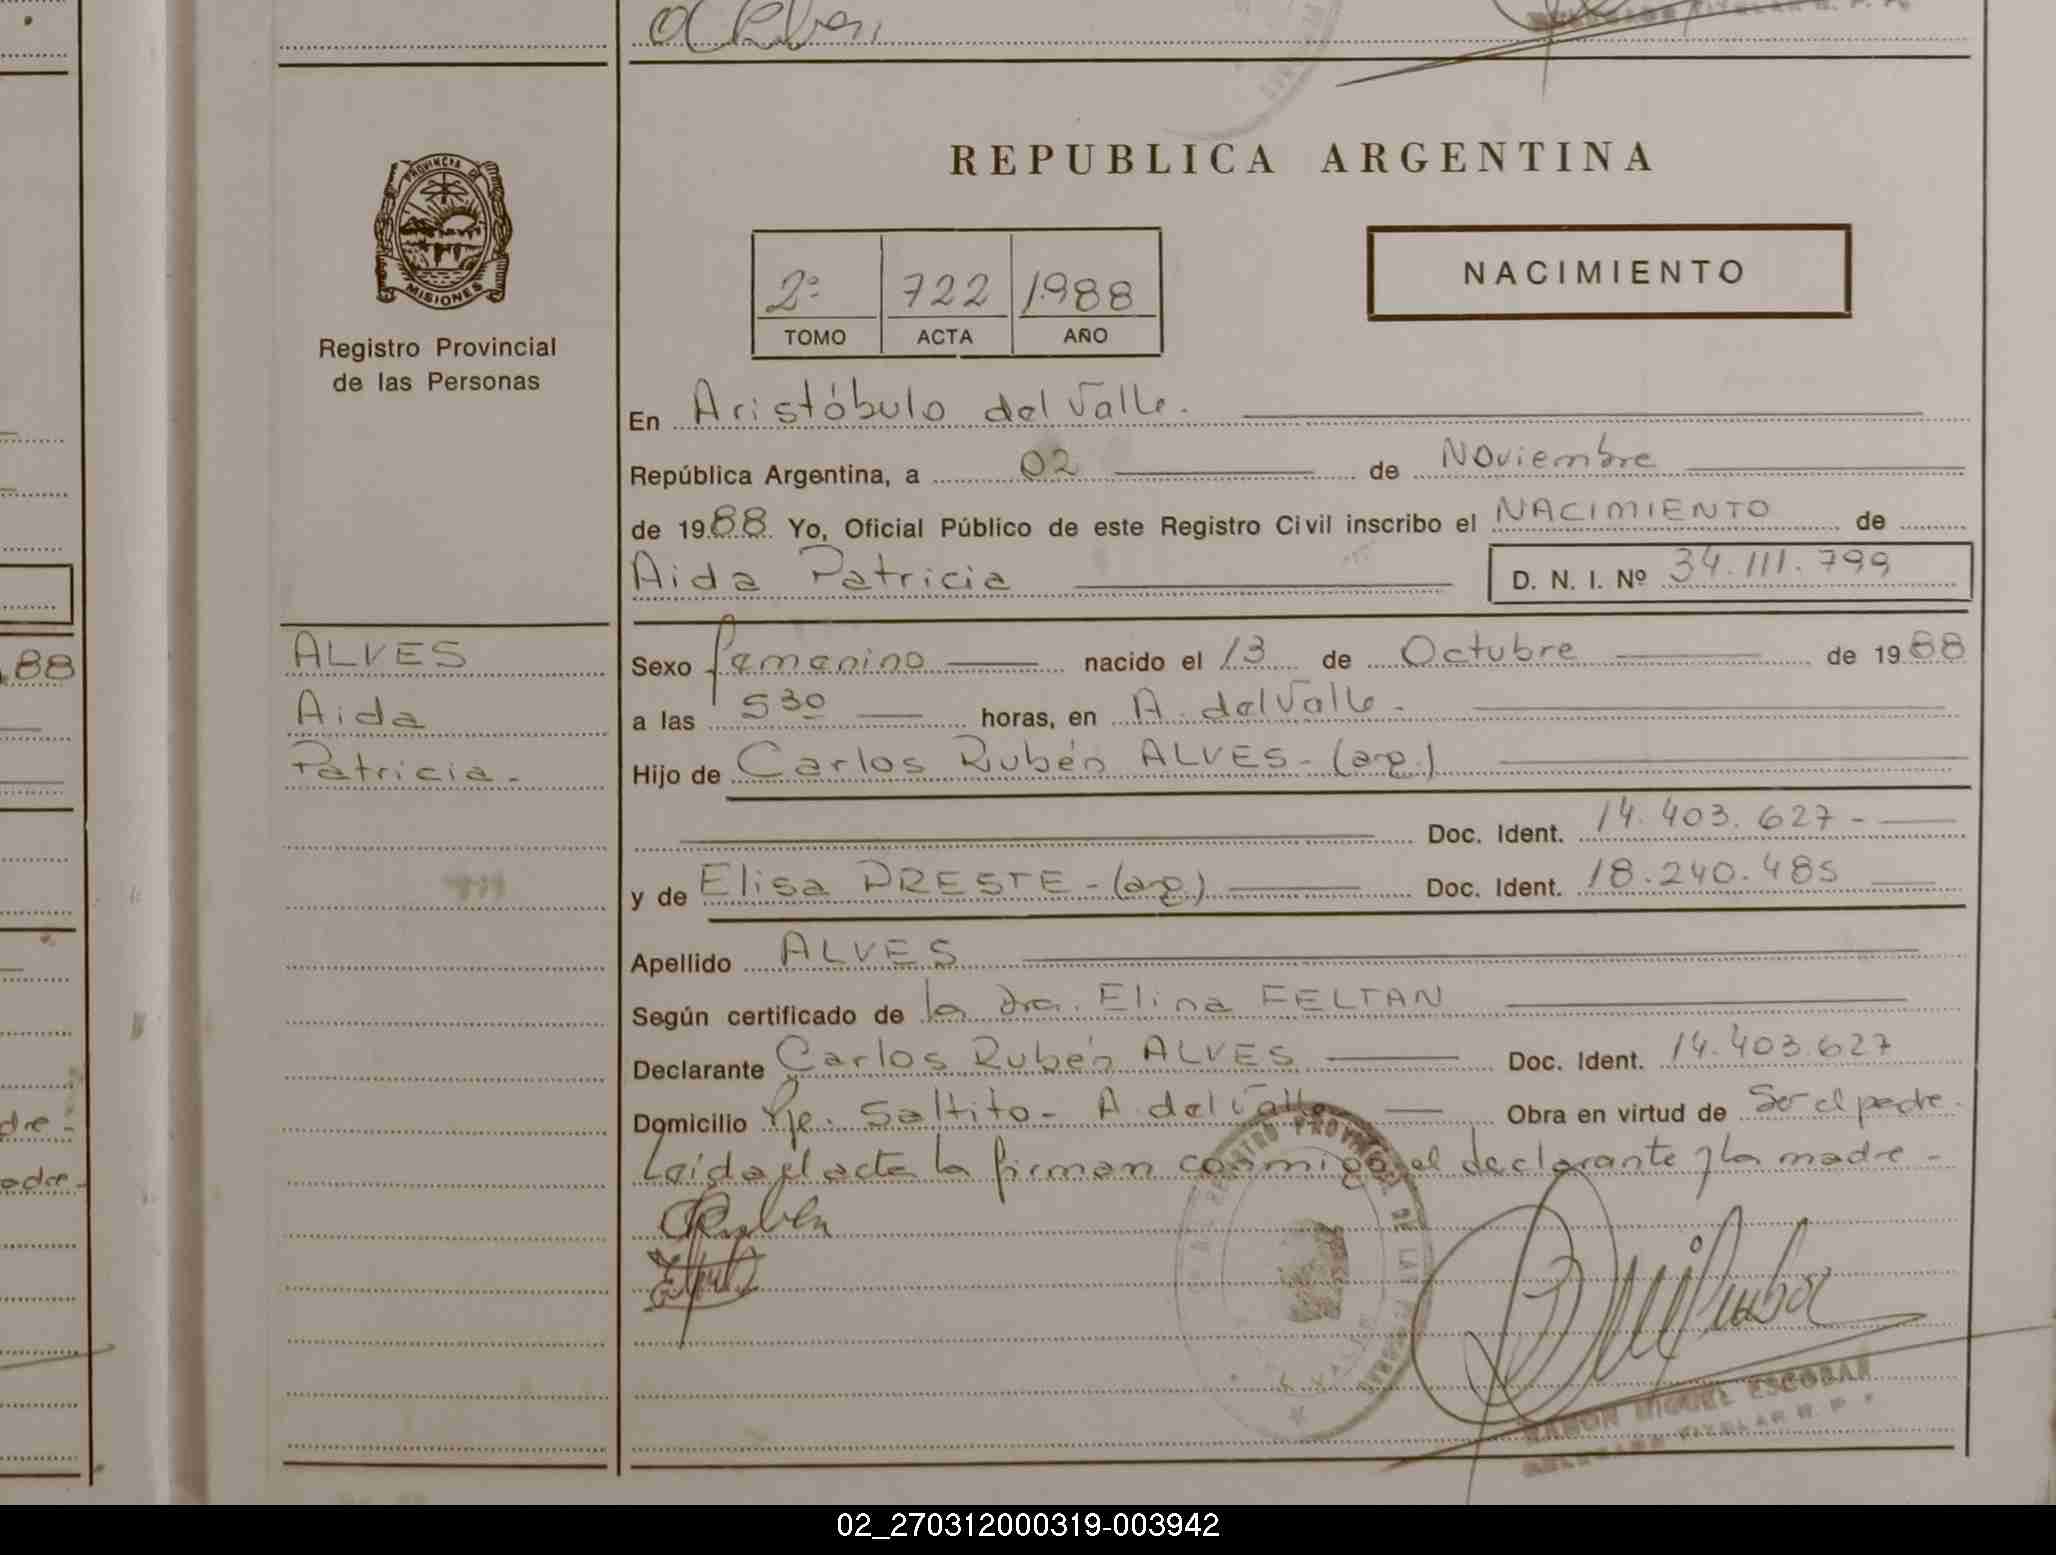 REPUBLICA ARGENTINA
PROVINCIA DE
MISIONES
Registro Provincial
de las Personas
2º 722 1.988
TOMO ACTA AÑO
NACIMIENTO
En Aristóbulo del Valle.
República Argentina, a 02 de Noviembre
de 1988 Yo, Oficial Público de este Registro Civil inscribo el NACIMIENTO de
Aida Patricia D. N. I. Nº 34.111.799
ALVES
Aida
Patricia.-
Sexo femenino nacido el 13 de Octubre de 1988
a las 5 30 horas, en A. del Valle.
Hijo de Carlos Rubén ALVES-(arg.)
Doc. Ident. 14.403.627-
y de Elisa PRESTE-(arg.) Doc. Ident. 18.240.485
Apellido ALVES
Según certificado de la Dra. Elina FELTAN
Declarante Carlos Rubén ALVES Doc. Ident. 14.403.627
Domicilio Pje. Saltito- A. del Valle Obra en virtud de Ser el padre.
Leida el acta la firman conmigo, el declarante y la madre-
REGISTRO PROVINCIAL DE LAS PERSONAS
RAMON MIGUEL ESCOBAR
88
dre.-
adre.-
02_270312000319-003942